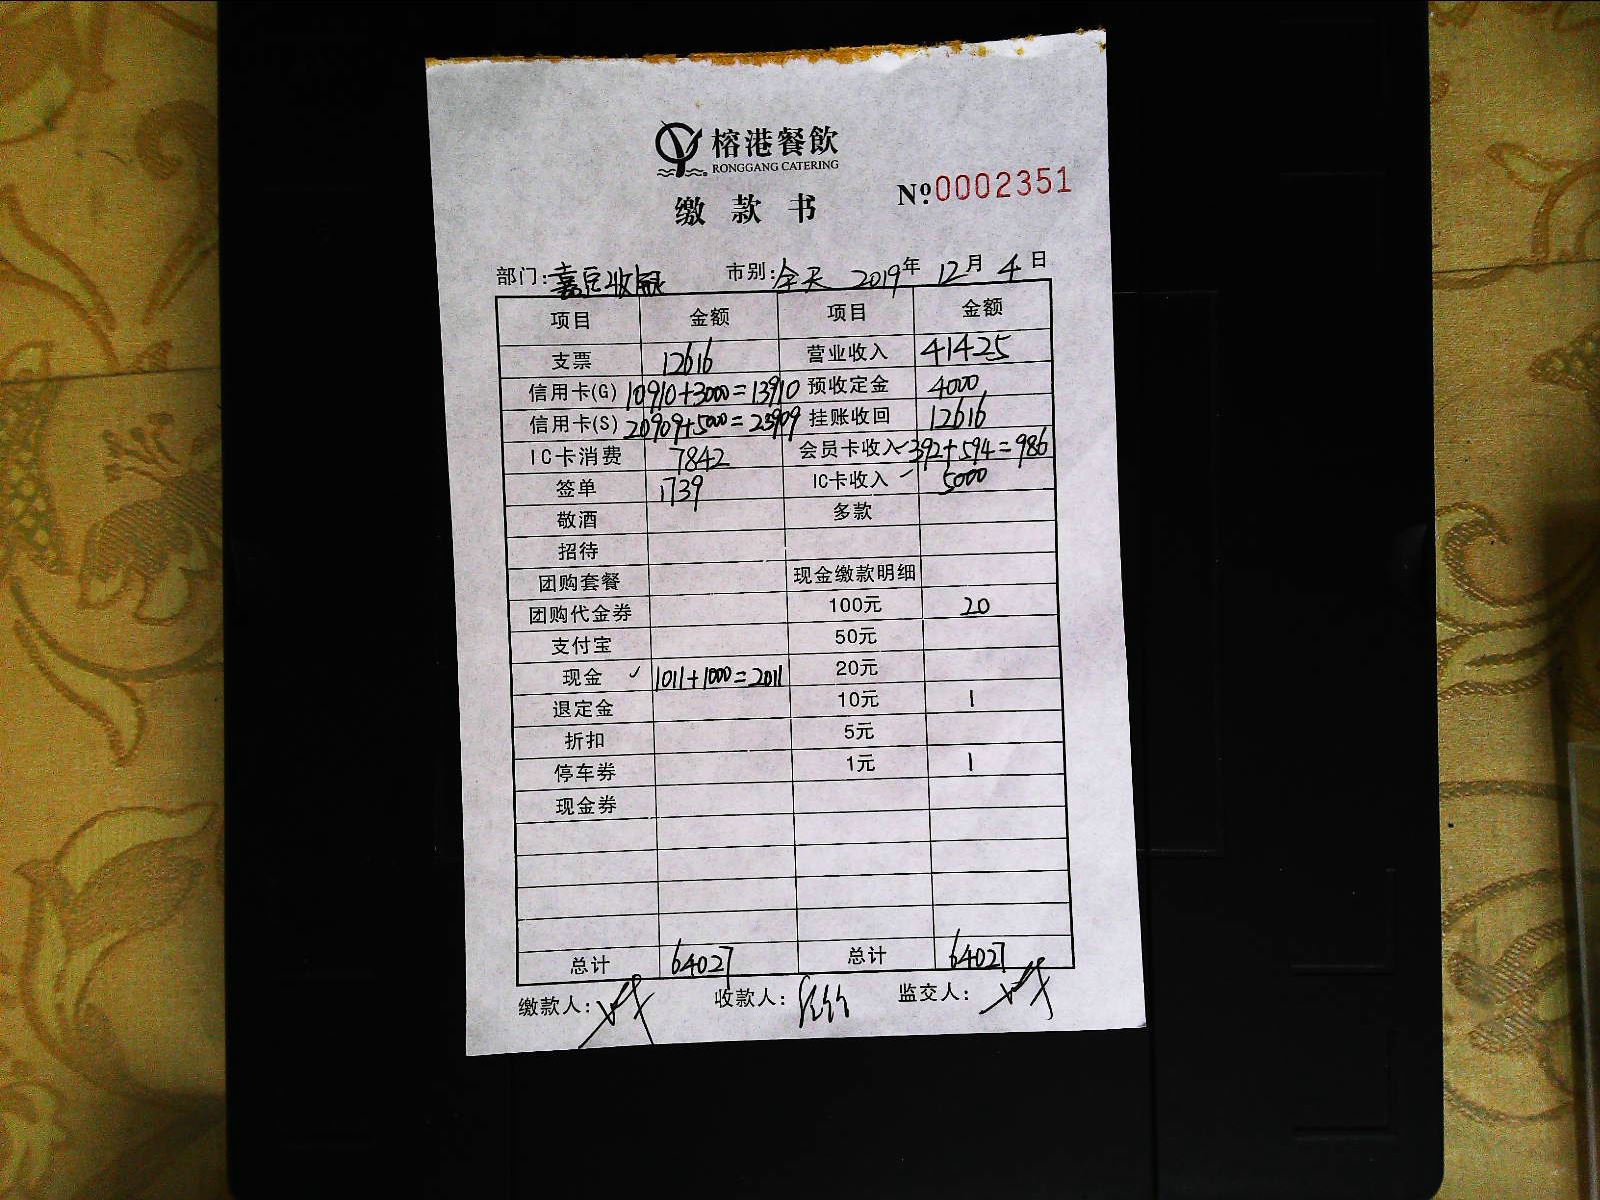 榕港餐飲
RONGGANG CATERING
缴款书
№0002351
部门: 市别:全天 2019年 12月 4日
项目 金额 项目 金额
支票 12616 营业收入 41425
信用卡(G) 10910+3000=13910 预收定金 4000
信用卡(S) 20909+5000=25909 挂账收回 12616
IC卡消费 7842 会员卡收入✓392+594=986
签单 1739 IC卡收入✓ 5000
敬酒 多款
招待
团购套餐 现金缴款明细
团购代金券 100元 20
支付宝 50元
现金 ✓ 1011+1000=2011 20元
退定金 10元 1
折扣 5元
停车券 1元 1
现金券
总计 64027 总计 64027
缴款人: 收款人: 监交人: